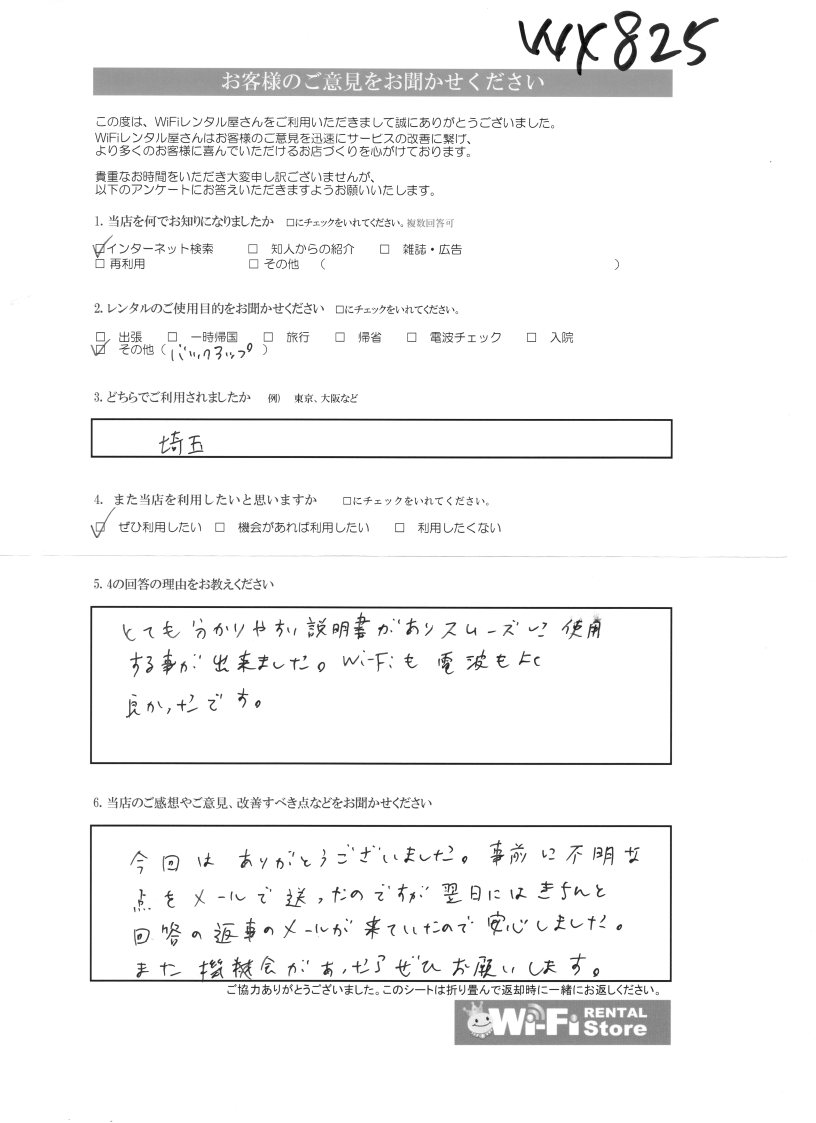 WX825
お客様のご意見をお聞かせください
この度は、WiFiレンタル屋さんをご利用いただきまして誠にありがとうございました。
WiFiレンタル屋さんはお客様のご意見を迅速にサービスの改善に繋げ、
より多くのお客様に喜んでいただけるお店づくりを心がけております。
貴重なお時間をいただき大変申し訳ございませんが、
以下のアンケートにお答えいただきますようお願いいたします。
1. 当店を何でお知りになりましたか □にチェックをいれてください。複数回答可
☑インターネット検索 □ 知人からの紹介 □ 雑誌・広告
□ 再利用 □ その他 ( )
2. レンタルのご使用目的をお聞かせください □にチェックをいれてください。
□ 出張 □ 一時帰国 □ 旅行 □ 帰省 □ 電波チェック □ 入院
☑ その他 ( バックアップ )
3. どちらでご利用されましたか 例) 東京、大阪など
埼玉
4. また当店を利用したいと思いますか □にチェックをいれてください。
☑ ぜひ利用したい □ 機会があれば利用したい □ 利用したくない
5. 4の回答の理由をお教えください
とても分かりやすい説明書がありスムーズに使用
する事が出来ました。Wi-Fiも電波もよく
良かったです。
6. 当店のご感想やご意見、改善すべき点などをお聞かせください
今回はありがとうございました。事前に不明な
点をメールで送ったのですが翌日にはきちんと
回答の返事のメールが来ていたので安心しました。
また機会があったらぜひお願いします。
ご協力ありがとうございました。このシートは折り畳んで返却時に一緒にお返しください。
Wi-Fi RENTAL Store